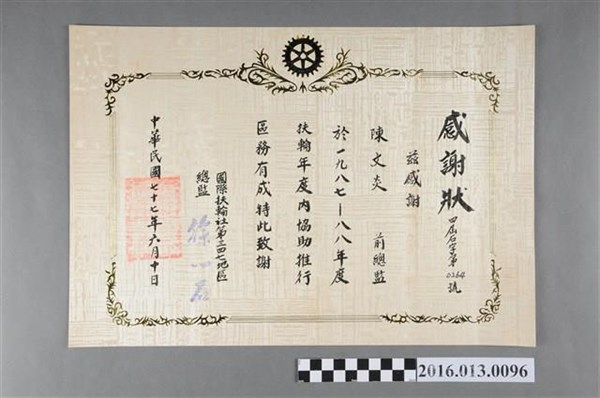 感謝狀
四屆石字第0264號
茲感謝
陳文炎 前總監
於一九八七—八八年度
扶輪年度內協助推行
區務有成特此致謝
國際扶輪社第三四七地區
總監
中華民國七十七年六月十日
2016.013.0096